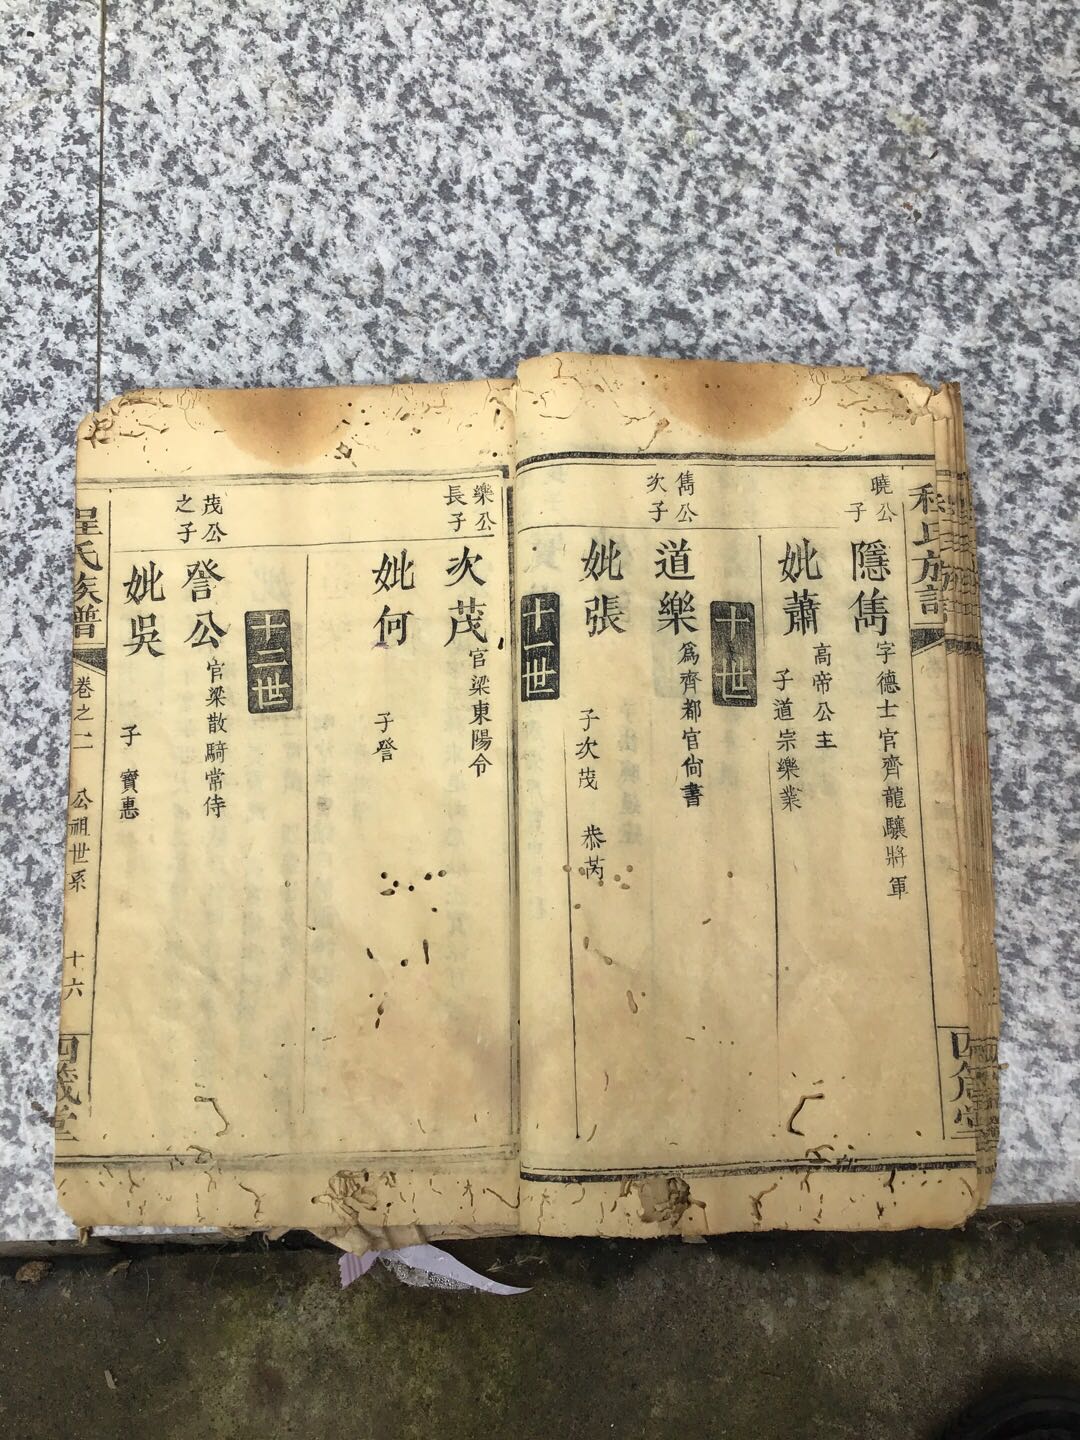 程氏族譜
四箴堂
曉公
子
隱雋
字德士官齊龍驤將軍
妣蕭
高帝公主
子道宗樂業
十世
雋公
次子
道樂
爲齊都官尙書
妣張
子次茂 恭芮
十一世
樂公
長子
次茂
官梁東陽令
妣何
子詧
十三世
茂公
之子
詧公
官梁散騎常侍
妣吳
子 寶惠
程氏族譜
卷之二
公祖世系
十六
四箴堂